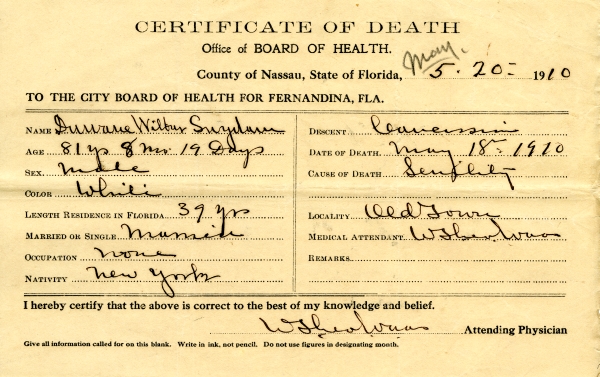 CERTIFICATE OF DEATH
Office of BOARD OF HEALTH.
May.
County of Nassau, State of Florida, 5 · 20 = 1910
TO THE CITY BOARD OF HEALTH FOR FERNANDINA, FLA.
NAME Duwane Wilbur Suydam
AGE 81 ys 8 Mo. 19 Days
SEX Male
COLOR White
LENGTH RESIDENCE IN FLORIDA 39 yrs
MARRIED OR SINGLE Married
OCCUPATION None
NATIVITY New York
DESCENT Caucassin
DATE OF DEATH May 18 = 1910
CAUSE OF DEATH Senility
LOCALITY Old Town
MEDICAL ATTENDANT W Theo Waas
REMARKS
I hereby certify that the above is correct to the best of my knowledge and belief.
W Theo Waas Attending Physician
Give all information called for on this blank. Write in ink, not pencil. Do not use figures in designating month.